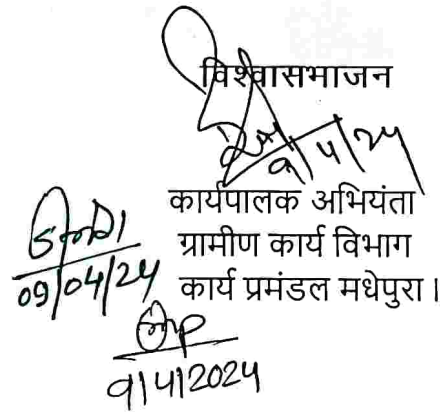 विश्वासभाजन
9/4/24
कार्यपालक अभियंता
ग्रामीण कार्य विभाग
कार्य प्रमंडल मधेपुरा।
09/04/24
9/4/2024